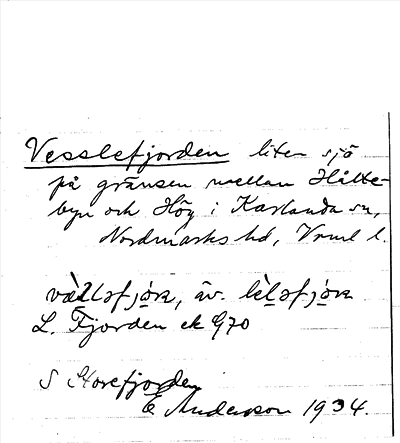 Vesslefjorden liten sjö
på gränsen mellan Hålte-
byn och Hög i Karlanda sn,
Nordmarks hd, Vrml l.
L. Fjorden ek G70
S Storefjorden
E Andersson 1934.